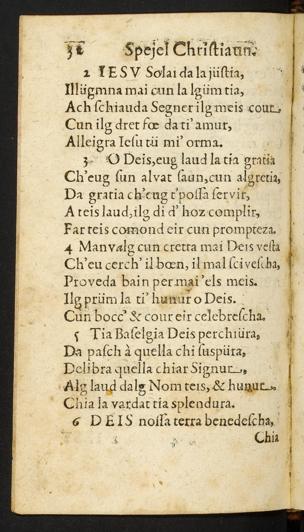 32 Spejel Christiaun.
2 IESV Solai da la jüstia,
Illügmna mai cun la lgüm tia,
Ach schiauda Segner ilg meis cour,
Cun ilg dret fœ da ti' amur,
Alleigra Iesu tü mi' orma.
3 O Deis, eug laud la tia gratia
Ch'eug sun alvat saun, cun algretia,
Da gratia ch'eug t'possa servir,
A teis laud, ilg di d' hoz complir,
Far teis comond eir cun prompteza.
4 Manvalg cun cretta mai Deis vesta
Ch'eu cerch' il bœn, il mal scivescha,
Proveda bain per mai 'els meis.
Ilg prüm la ti' hunur o Deis.
Cun bocc' & cour eir celebrescha.
5 Tia Baselgia Deis perchiüra,
Da pasch à quella chi suspüra,
Delibra quella chiar Signur,
Alg laud dalg Nom teis, & hunur
Chia la vardat tia splendura.
6 DEIS nossa terra benedescha,
Chia